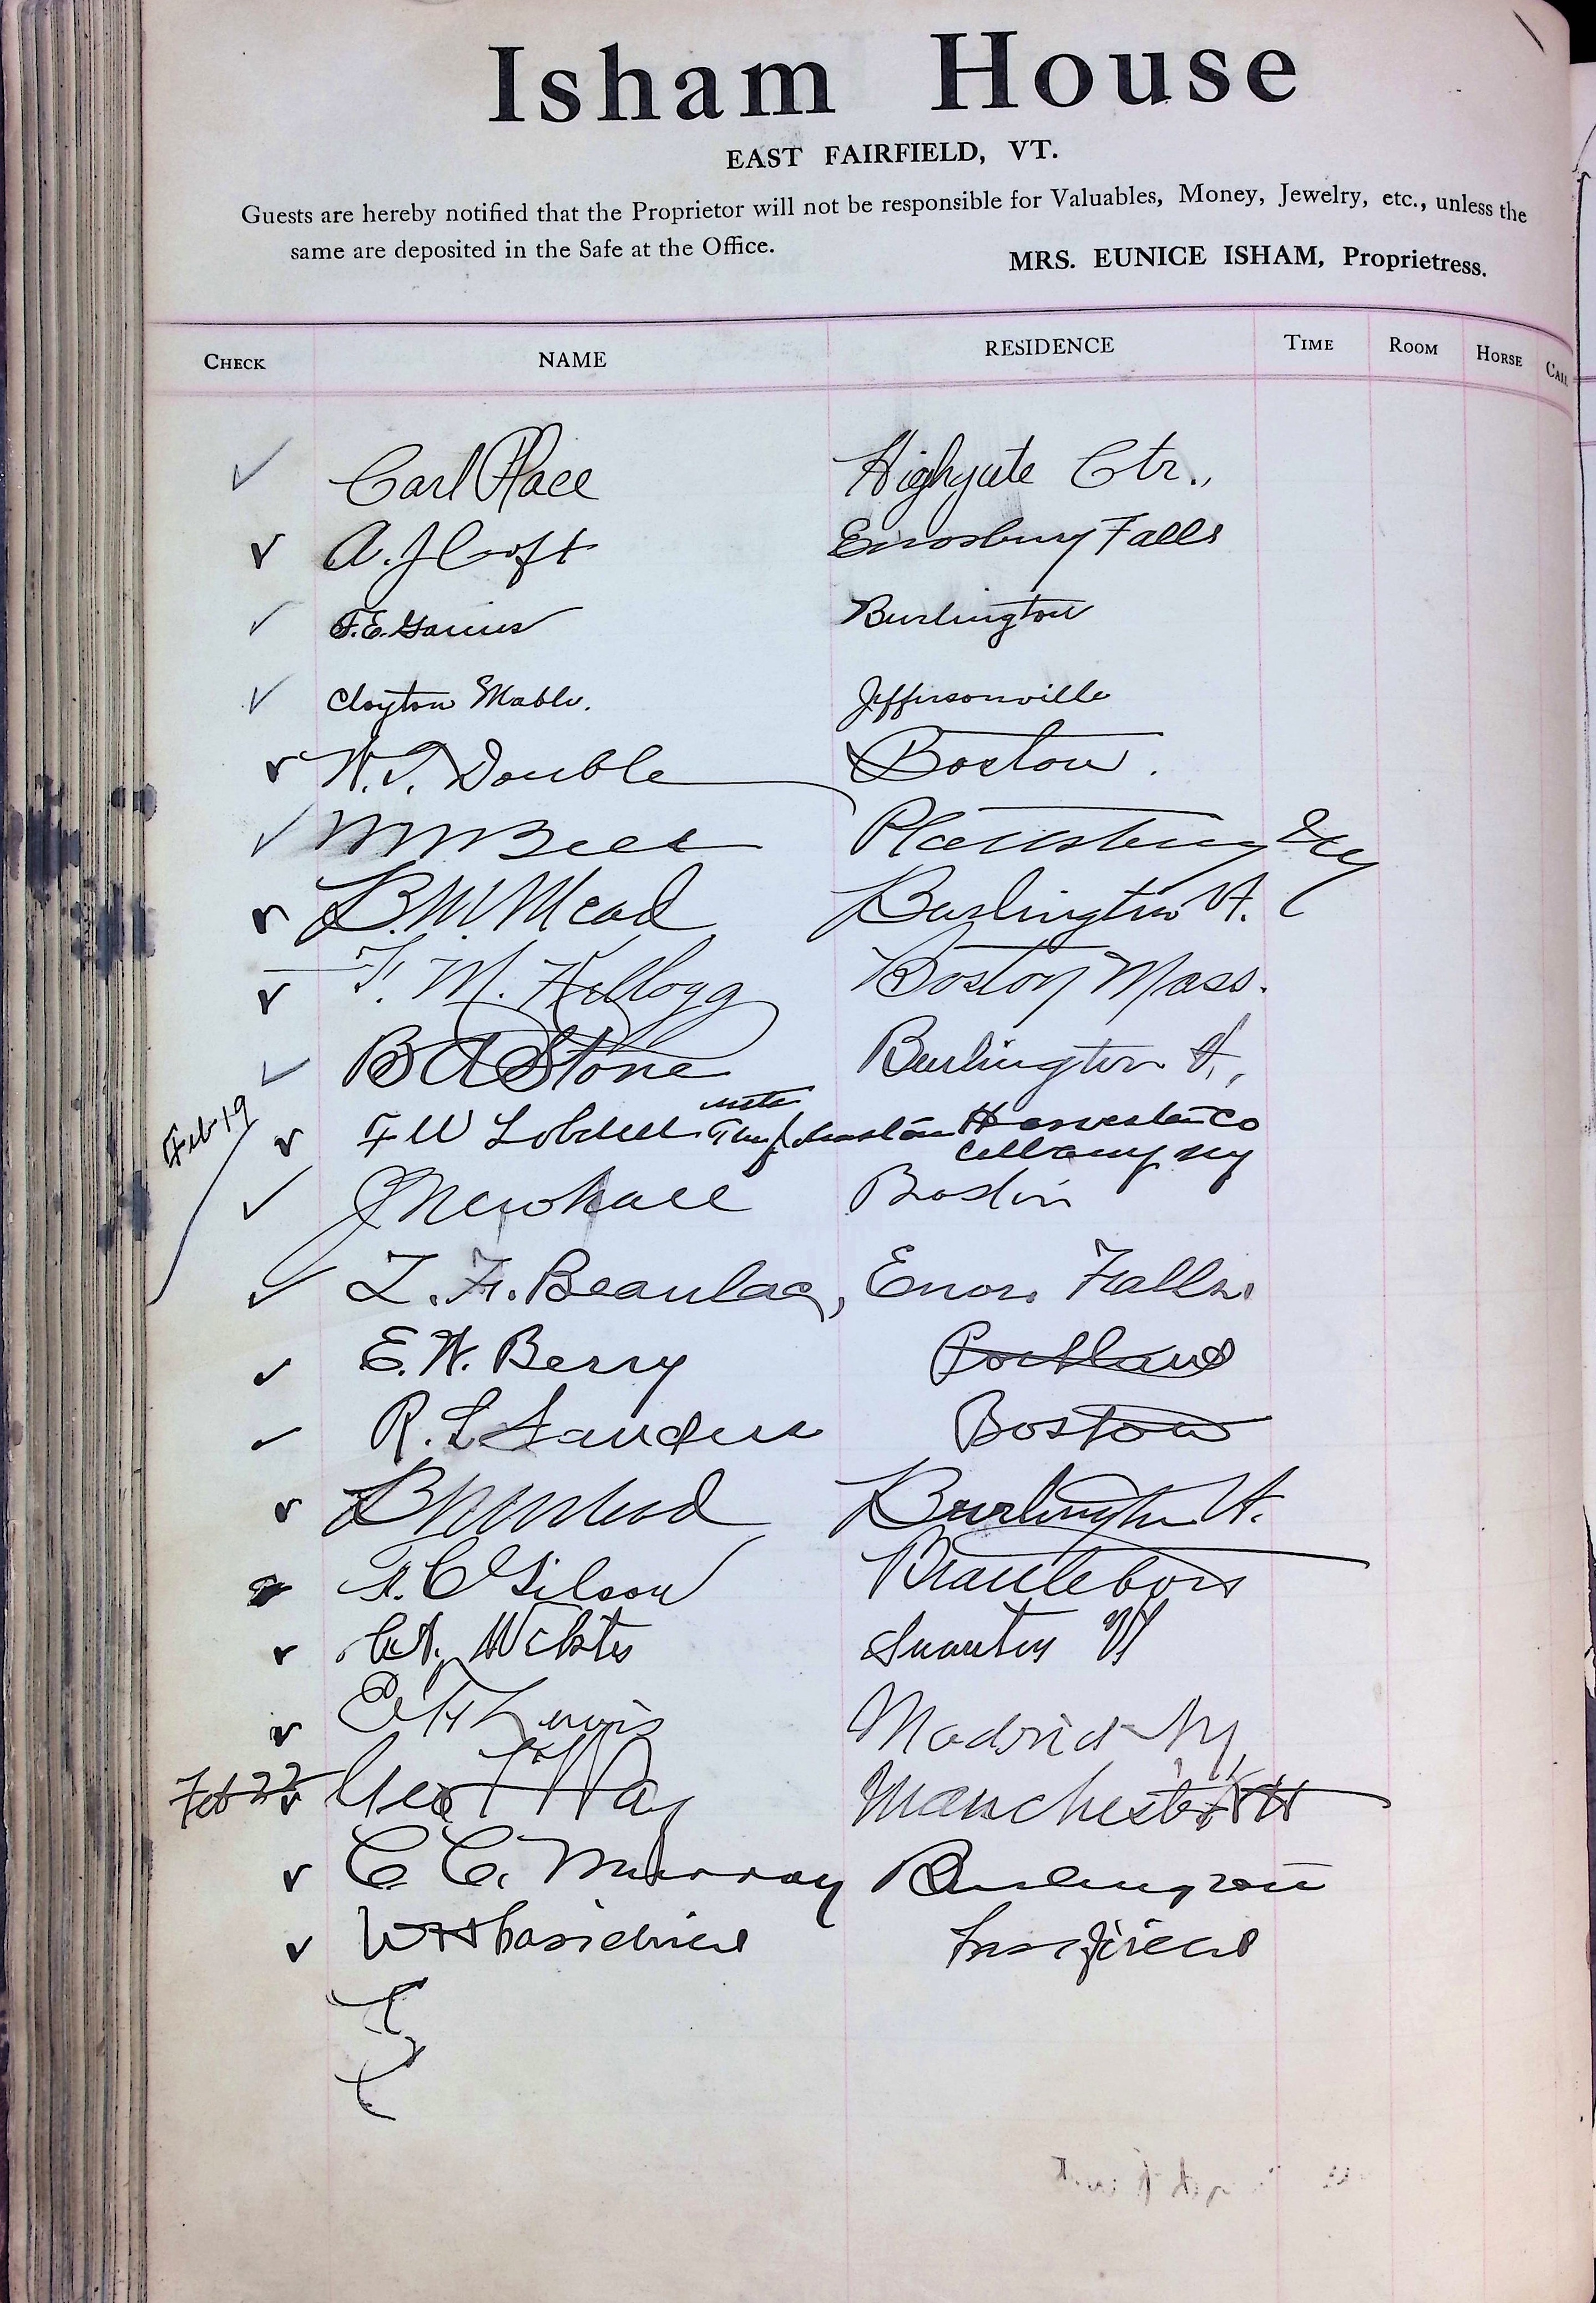 Isham House
EAST FAIRFIELD, VT.
Guests are hereby notified that the Proprietor will not be responsible for Valuables, Money, Jewelry, etc., unless the
same are deposited in the Safe at the Office.
MRS. EUNICE ISHAM, Proprietress.
CHECK NAME RESIDENCE TIME ROOM HORSE CALL
Carl Place Highgate Ctr.,
A. J Croft Enosburg Falls
Burlington
Clayton Jeffersonville
W. T. Double Boston.
Plattsburg NY
B. W. Mead Burlington Vt.
F. M. Kellogg Boston Mass.
B A Stone Burlington Vt.,
with
Feb 19 F W Lobdell The Johnston Harvester Co
Albany NY
J Newhall Boston
L. F. Beaulac, Enos. Falls.
E. W. Berry Portland
R. L Sanders Boston
B W Mead Burlington Vt.
F. C Gilson Brattleboro
Swanton Vt
Lewis Madrid NY
Feb 22 Geo T Way Manchester NH
C. C. Murray Burlington
Fairfield